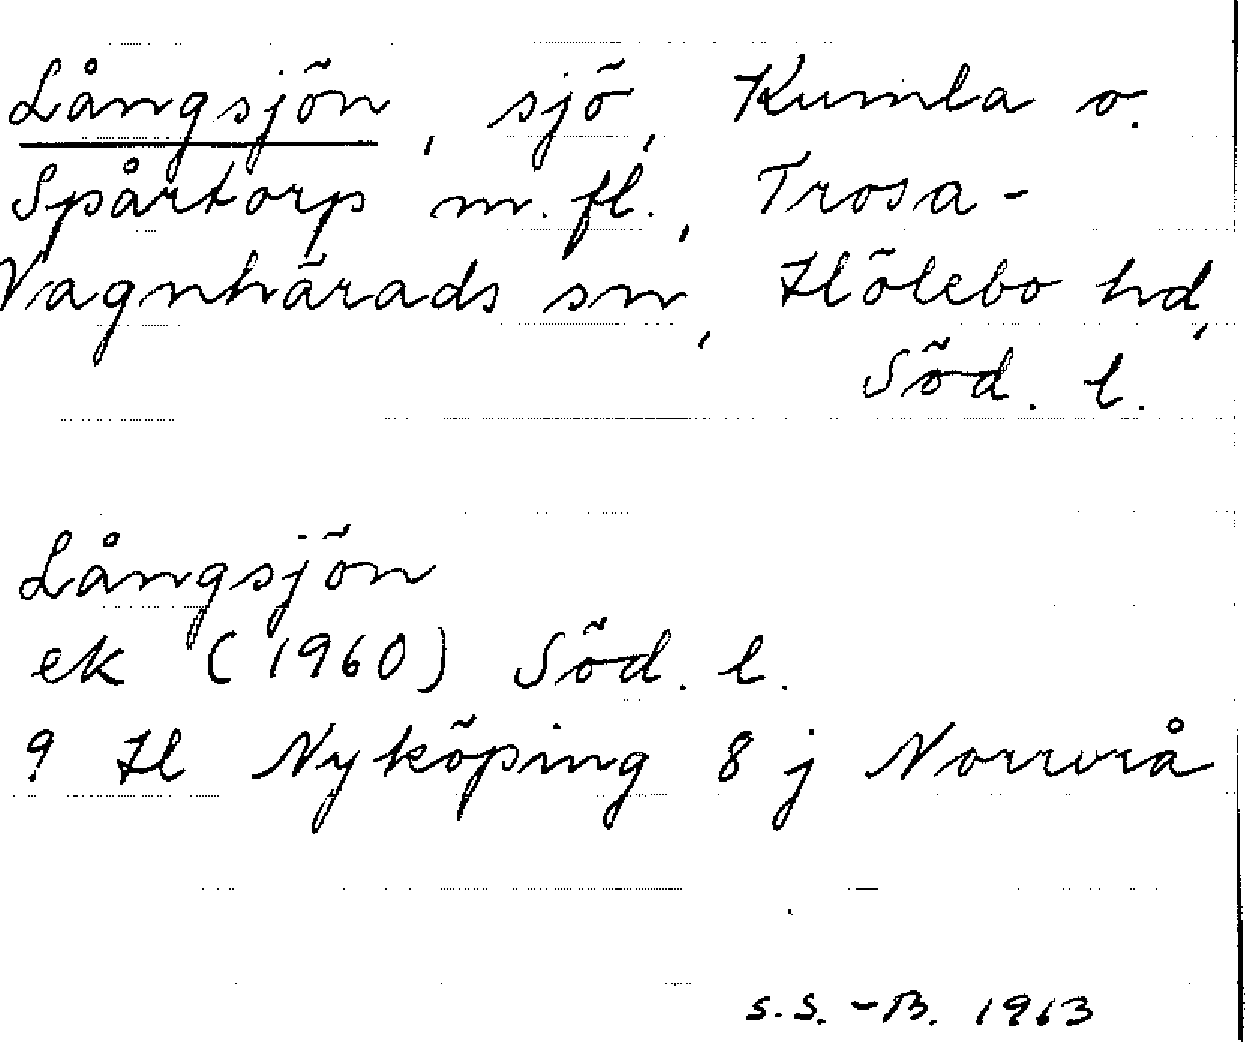 Långsjön, sjö, Kumla o.
Spårtorp m. fl., Trosa-
Vagnhärads sn, Hölebo hd,
Söd. l.
Långsjön
ek (1960) Söd. l.
9 H Nyköping 8 j Norrvrå
S.S.-B. 1963